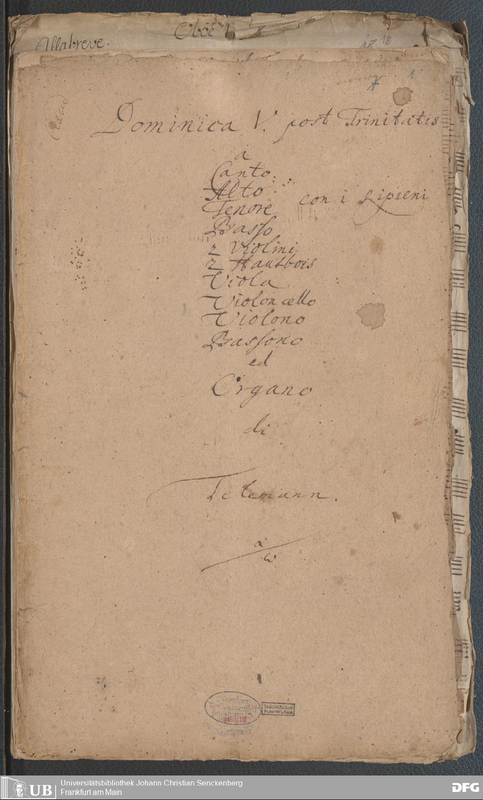 Oboe
Allabreve.
Dominica V. post Trinitatis
a
Canto
Alto
Tenore con i ripieni
Basso
2 Violini
2 Hautbois
Viola
Violoncello
Violono
Bassono
ed
Organo
di
Telemann.
α/ω
UB Universitätsbibliothek Johann Christian Senckenberg
Frankfurt am Main
DFG